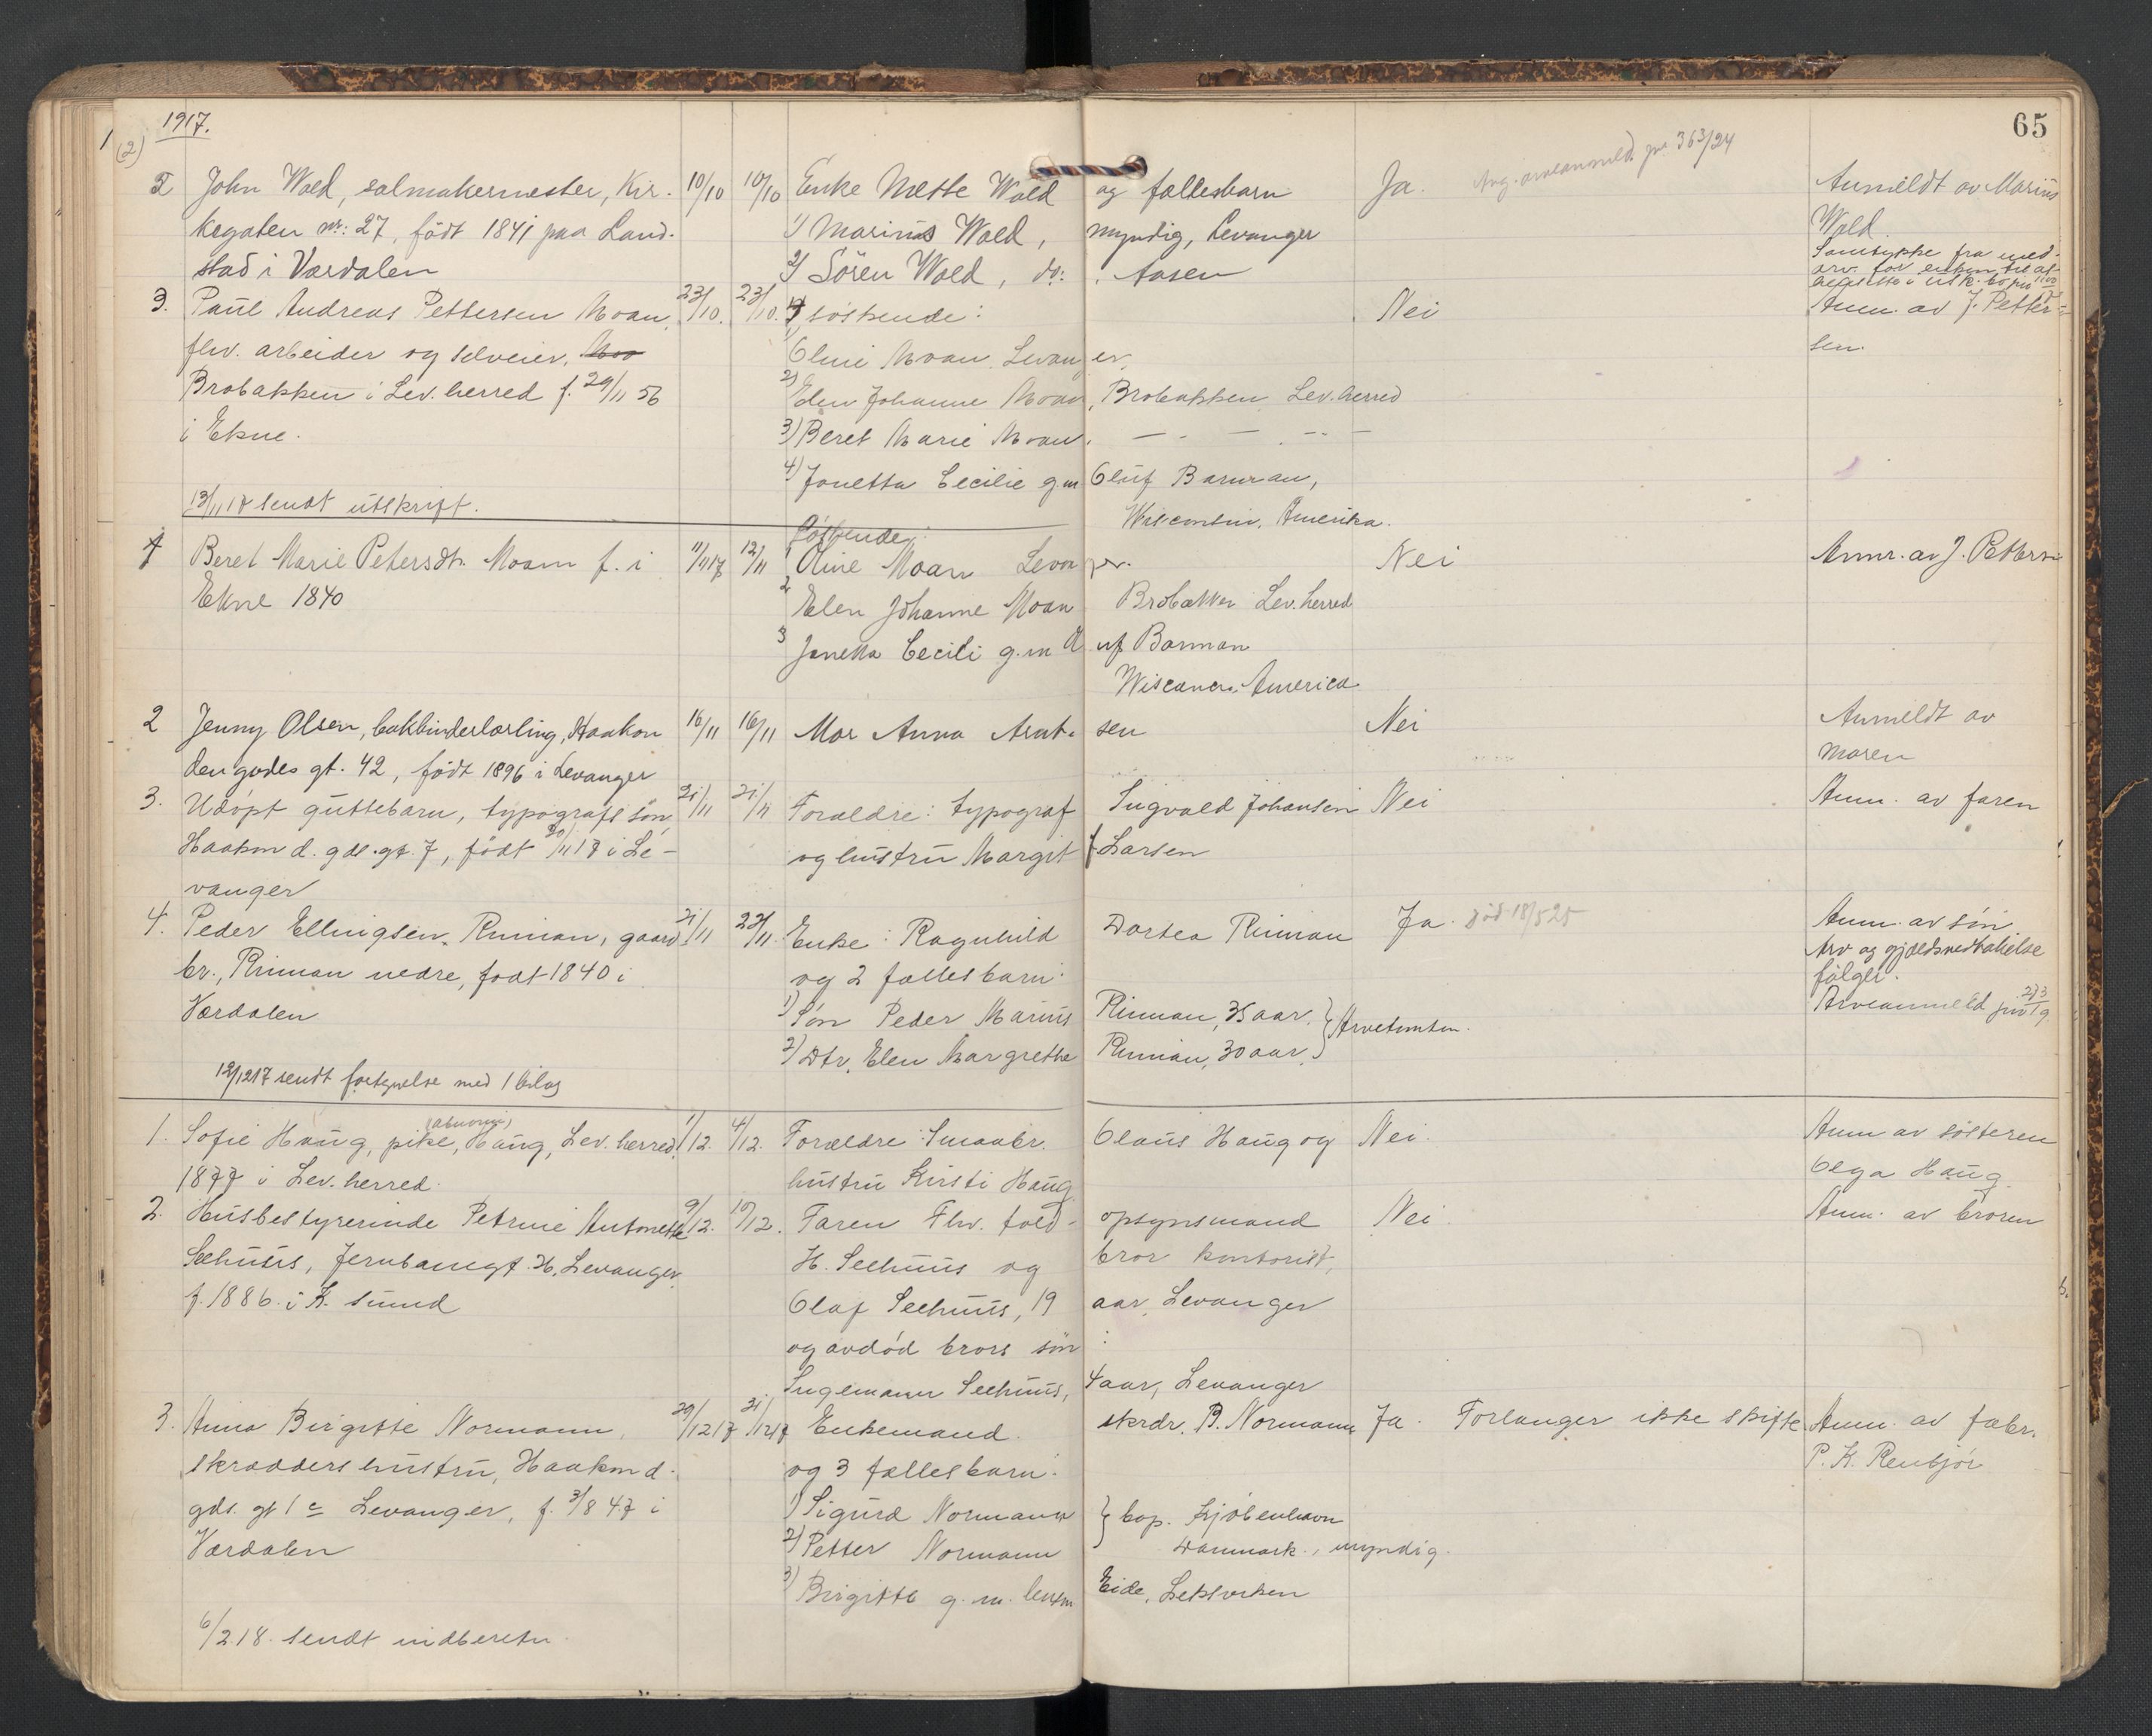 1917.
65
1 (2)
2 John Wold, salmakermester, Kir- 10/10 10/10 Enke Mette Wold og fællesbarn Ja. Avg. arveanmeld. jnr 363/24 Anmeldt av Marius
kegaten nr: 27, født 1841 paa Land- 1) Marius Wold, myndig, Levanger Wold.
stad i Værdalen 2) Sören Wold, do: Aasen Samtykke fra med-
arv. for enken til at
3. Paul Andreas Pettersen Moan, 23/10. 23/10. 4 søskende: Nei Anm. av J. Petter-
flv. arbeider og selveier, Moo 1) Oline Moan, Levanger. sen.
Brobakken i Lev. herred f. 29/11 56 2) Elen Johanne Moan, Brobakken, Lev. herred
i Ekne. 3) Beret Marie Moan, — - — . -- —
4) Jonetta Cecilie g.m. Oluf Barman,
13/11 17 sendt utskrift. Wisconsin, Amerika.
Søskende:
1 Beret Marie Petersdt. Moan f. i 11/11 17 12/11 1 Oline Moan Levanger. Nei Anm. av J. Petters
Ekne 1840 2 Elen Johanne Moan Brobakken Lev. herred
3 Janetta Cecili g.m. Oluf Barman
Wiscons. America
2 Jenny Olsen, bokbinderlærling, Haakon 16/11 16/11 Mor Anna Arntsen Nei Anmeldt av
den godes gt. 42, født 1896 i Levanger moren
3. Udøpt guttebarn, typografs søn, 21/11 21/11 Forældre: typograf Sigvald Johansen Nei Anm. av faren
Haakon d. gds. gt. 7, født 20/11 17 i Le- og hustru Margit f. Larsen
vanger
4. Peder Ellingsen Rinnan, gaard- 21/11 22/11. Enke: Ragnhild Dortea Rinnan Ja. død 18/5 25 Anm. av søn.
br., Rinnan nedre, født 1840 i og 2 fællesbarn: Arv og gjældsvedtakelse
Værdalen 1) Søn Peder Marius Rinnan, 35 aar. følger.
2) Dtr. Elen Margrethe Rinnan, 30 aar. } Arvetomten. Arveanmeld jnr 273/19
12/12 17 sendt fortegnelse med 1 bilag
1. Sofie Haug, pike, (abnorm) Haug, Lev. herred f. 1/12. 4/12. Forældre: Smaabr. Olaus Haug og Nei. Anm av søsteren
1877 i Lev. herred. hustru Kirsti Haug. Olga Haug.
2. Husbestyrerinde Petrine Antonette 9/12. 10/12. Faren Flv. told- opsynsmand Nei. Anm. av broren
Seehuus, Jernbanegt. H, Levanger, H. Seehuus og bror kontorist,
f. 1886. i K. sund Olaf Seehuus, 19 aar, Levanger
og avdød brors søn :
Ingemann Seehuus, 4 aar, Levanger
3. Anna Birgitte Normann, 29/12 17 31/12 17 Enkemand skrdr. B. Normann Ja. Forlanger ikke skifte Anm. av fabr.
skrædders hustru, Haakon d. og 3 fællesbarn: P. K. Renbjør
gds. gt 1 c Levanger, f. 3/8 47 i 1) Sigurd Normann } bop. Kjøbenhavn
Værdalen 2) Petter Normann Danmark., myndig.
3) Birgitte g. m. lensm Eide, Leksviken
6/2 18. sendt indberetn.